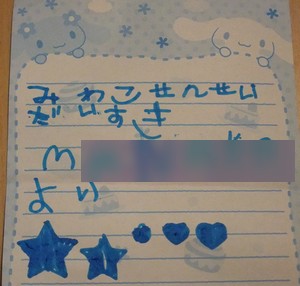 みわこせんせい
だいすき
より